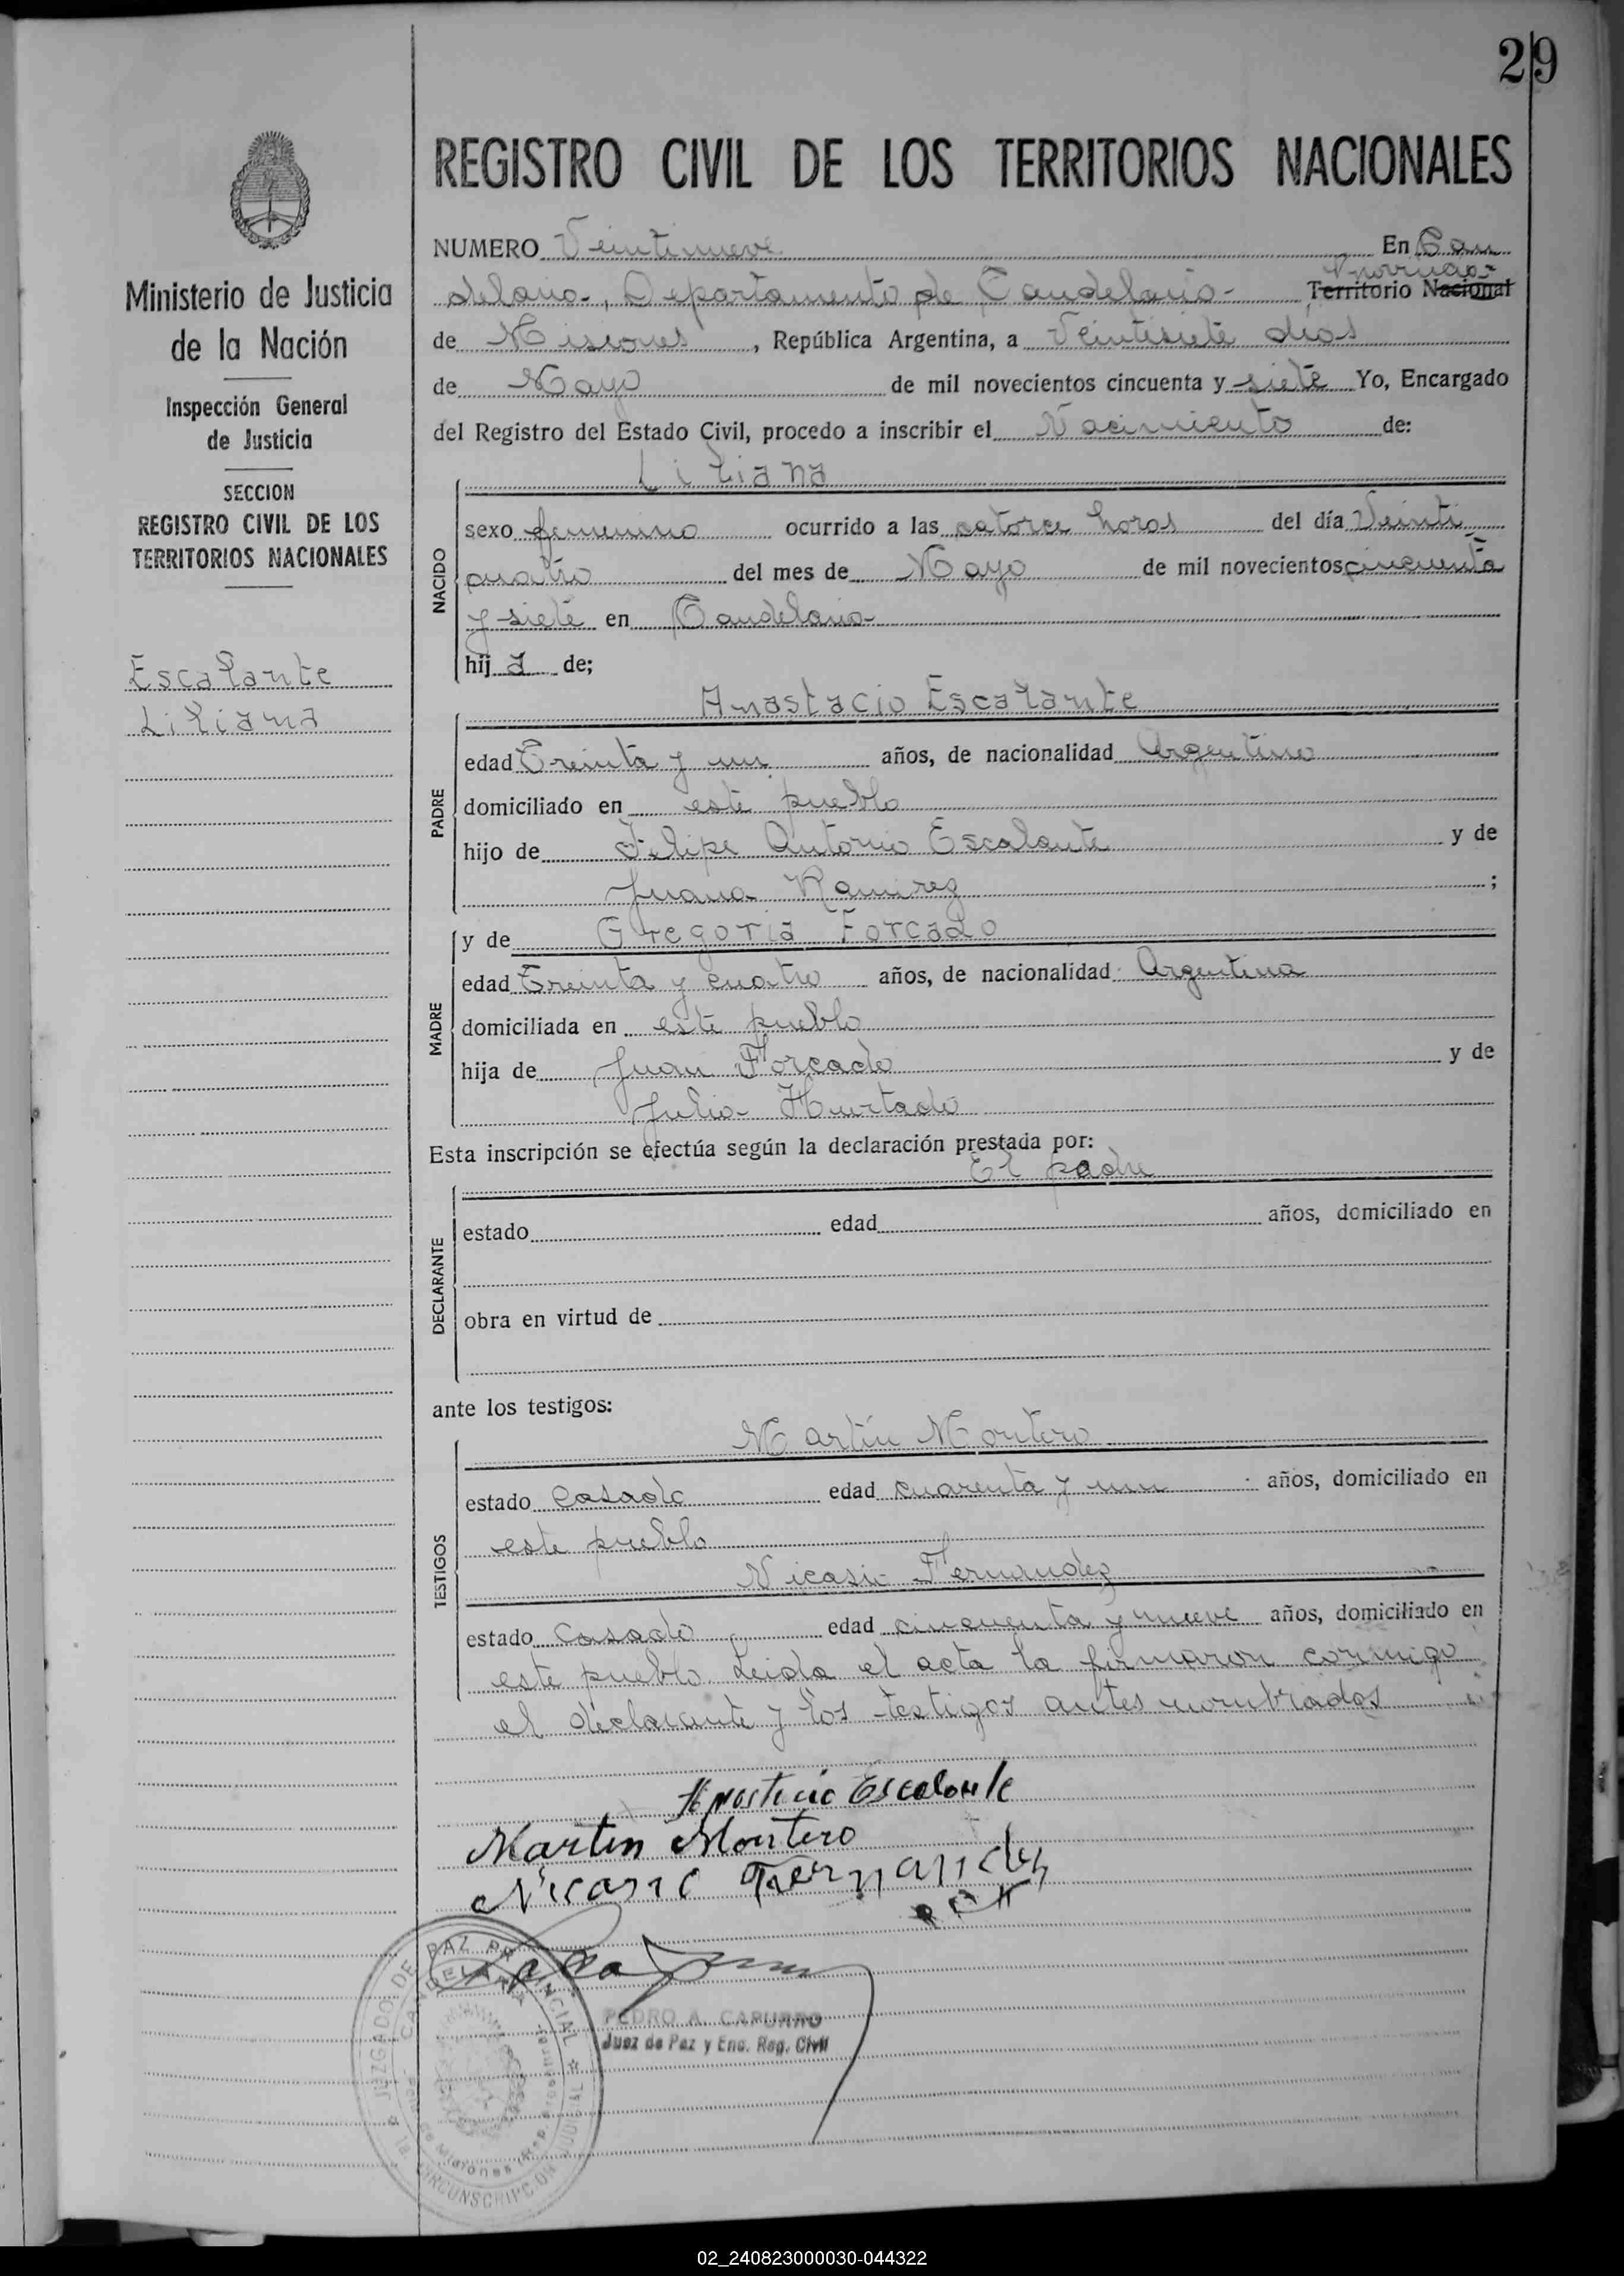 29
REGISTRO CIVIL DE LOS TERRITORIOS NACIONALES
Ministerio de Justicia
de la Nación
Inspección General
de Justicia
SECCION
REGISTRO CIVIL DE LOS
TERRITORIOS NACIONALES
Escalante
Liliana
NUMERO Veintinueve En Can
Provincia
delaria, Departamento de Candelaria Territorio Nacional
de Misiones, República Argentina, a Veintisiete días
de Mayo de mil novecientos cincuenta y siete Yo, Encargado
del Registro del Estado Civil, procedo a inscribir el Nacimiento de:
Liliana
NACIDO
sexo femenino ocurrido a las catorce horas del día Veinti
cuatro del mes de Mayo de mil novecientos cincuenta
y siete en Candelaria
hija de;
Anastacio Escalante
PADRE
edad Treinta y un años, de nacionalidad Argentino
domiciliado en este pueblo
hijo de Felipe Antonio Escalante y de
Juana Ramirez;
y de Gregoria Forcado
MADRE
edad Treinta y cuatro años, de nacionalidad Argentina
domiciliada en este pueblo
hija de Juan Forcado y de
Julia Hurtado
Esta inscripción se efectúa según la declaración prestada por:
El padre
DECLARANTE
estado edad años, domiciliado en
obra en virtud de
ante los testigos:
Martín Montero
TESTIGOS
estado casado edad cuarenta y un años, domiciliado en
este pueblo
Nicasio Fernandez
estado casado edad cincuenta y nueve años, domiciliado en
este pueblo. Leida el acta la firmaron conmigo
el declarante y los testigos antes nombrados
Anastacio Escalante
Martin Montero
Nicasio Fernandez
JUZGADO DE PAZ PROVINCIAL
CANDELARIA
Misiones
CIRCUNSCRIPCION JUDICIAL
PEDRO A. CAPURRO
Juez de Paz y Enc. Reg. Civil
02_240823000030-044322